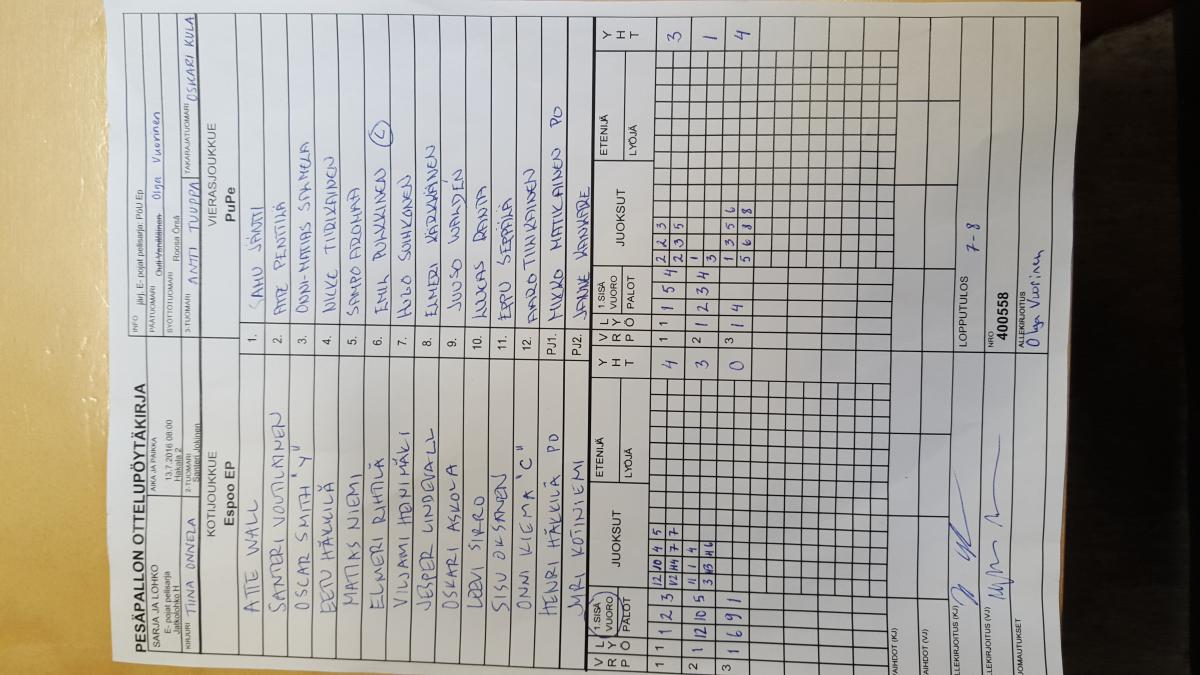 PESÄPALLON OTTELUPÖYTÄKIRJA
SARJA JA LOHKO
E- pojat pelisarja
Jatkolohko H
AIKA JA PAIKKA
13.7.2016 08:00
Hakala 2
INFO järj. E- pojat pelisarja: PöU Ep
PÄÄTUOMARI Outi Venäläinen Olga Vuorinen
SYÖTTÖTUOMARI Roosa Örså
KIRJURI TIINA ONNELA
2-TUOMARI
Santeri Jokinen
3-TUOMARI ANTTI TUUPPA
TAKARAJATUOMARI OSKARI KULA
KOTIJOUKKUE
Espoo EP
VIERASJOUKKUE
PuPe
ATTE WALL 1. SAMU JÄNTTI
SANTERI VOUTILAINEN 2. ATTE PENTTILÄ
OSCAR SMITH "Y" 3. ONNI-MATIAS
EETU HÄKKILÄ 4.
MATIAS NIEMI 5. SAMPO
ELMERI RIHTILÄ 6. EMIL PUNKKINEN C
VILJAMI HEINIMÄKI 7. HUGO SUIKONEN
JESPER LINDEVALL 8. ELMERI KÄRKKÄINEN
OSKARI ASKOLA 9. JUUSO
LEEVI SIRRO 10. LUCAS RANTA
SISU OKSANEN 11. EERU SEPPÄLÄ
ONNI KIEMA "C" 12. AARO TIINKAINEN
HENRI HÄKKILÄ PO PJ1. MIKKO MATIKAINEN PO
JYRI KOTINIEMI PJ2. JANNE KANKARE
V P L 1.SISÄ JUOKSUT ETENIJÄ Y V P L 1.SISÄ JUOKSUT ETENIJÄ Y
R Y Ö VUORO PALOT LYÖJÄ H T R Y Ö VUORO PALOT LYÖJÄ H T
1 1 1 2 3 12 10 4 5 4 1 1 1 5 4 2 2 3 3
12 14 7 7 2 3 5
2 1 12 10 5 11 1 4 3 2 1 2 3 4 1 1
3 13 16 3
3 1 6 9 1 0 3 1 4 1 3 5 6 4
5 6 8 8
AIHDOT (KJ)
AIHDOT (VJ)
LLEKIRJOITUS (KJ)
LOPPUTULOS 7-8
LLEKIRJOITUS (VJ)
NRO
400558
UOMAUTUKSET
ALLEKIRJOITUS
Olga Vuorinen